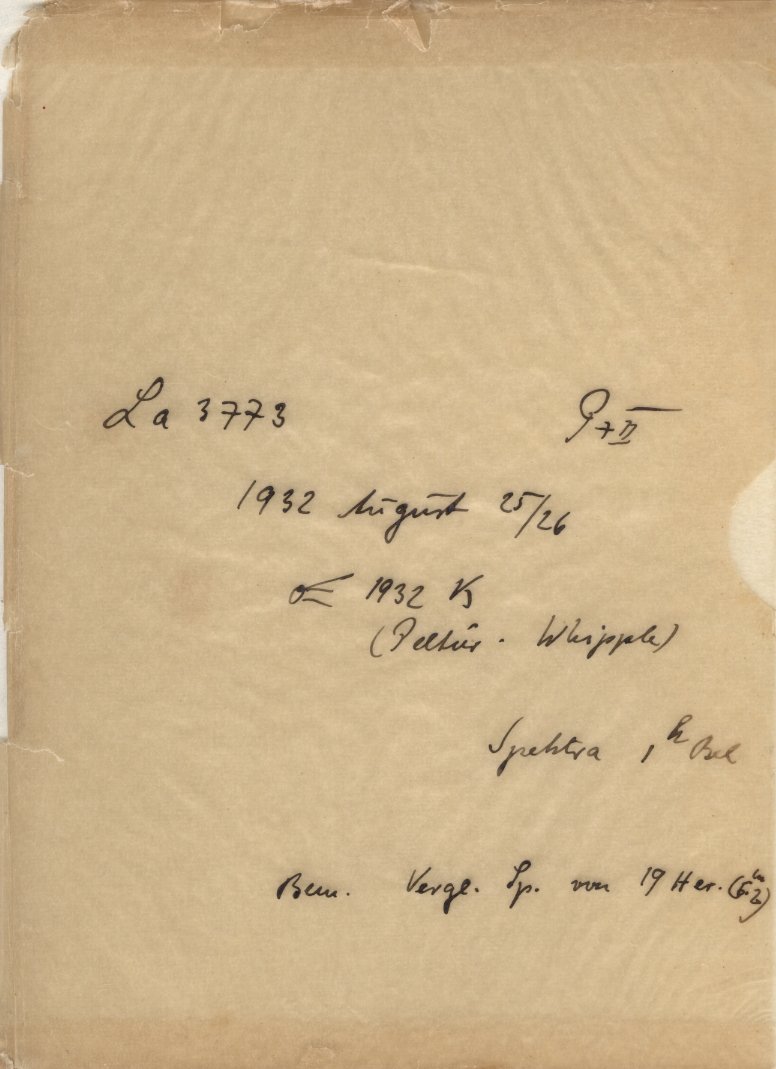 La 3773
1932 August 25/26
☄ 1932
(Peltier - Whipple)
Spektra 1ʰ Bel
Bem. Vergl. Sp. von 19 Her.